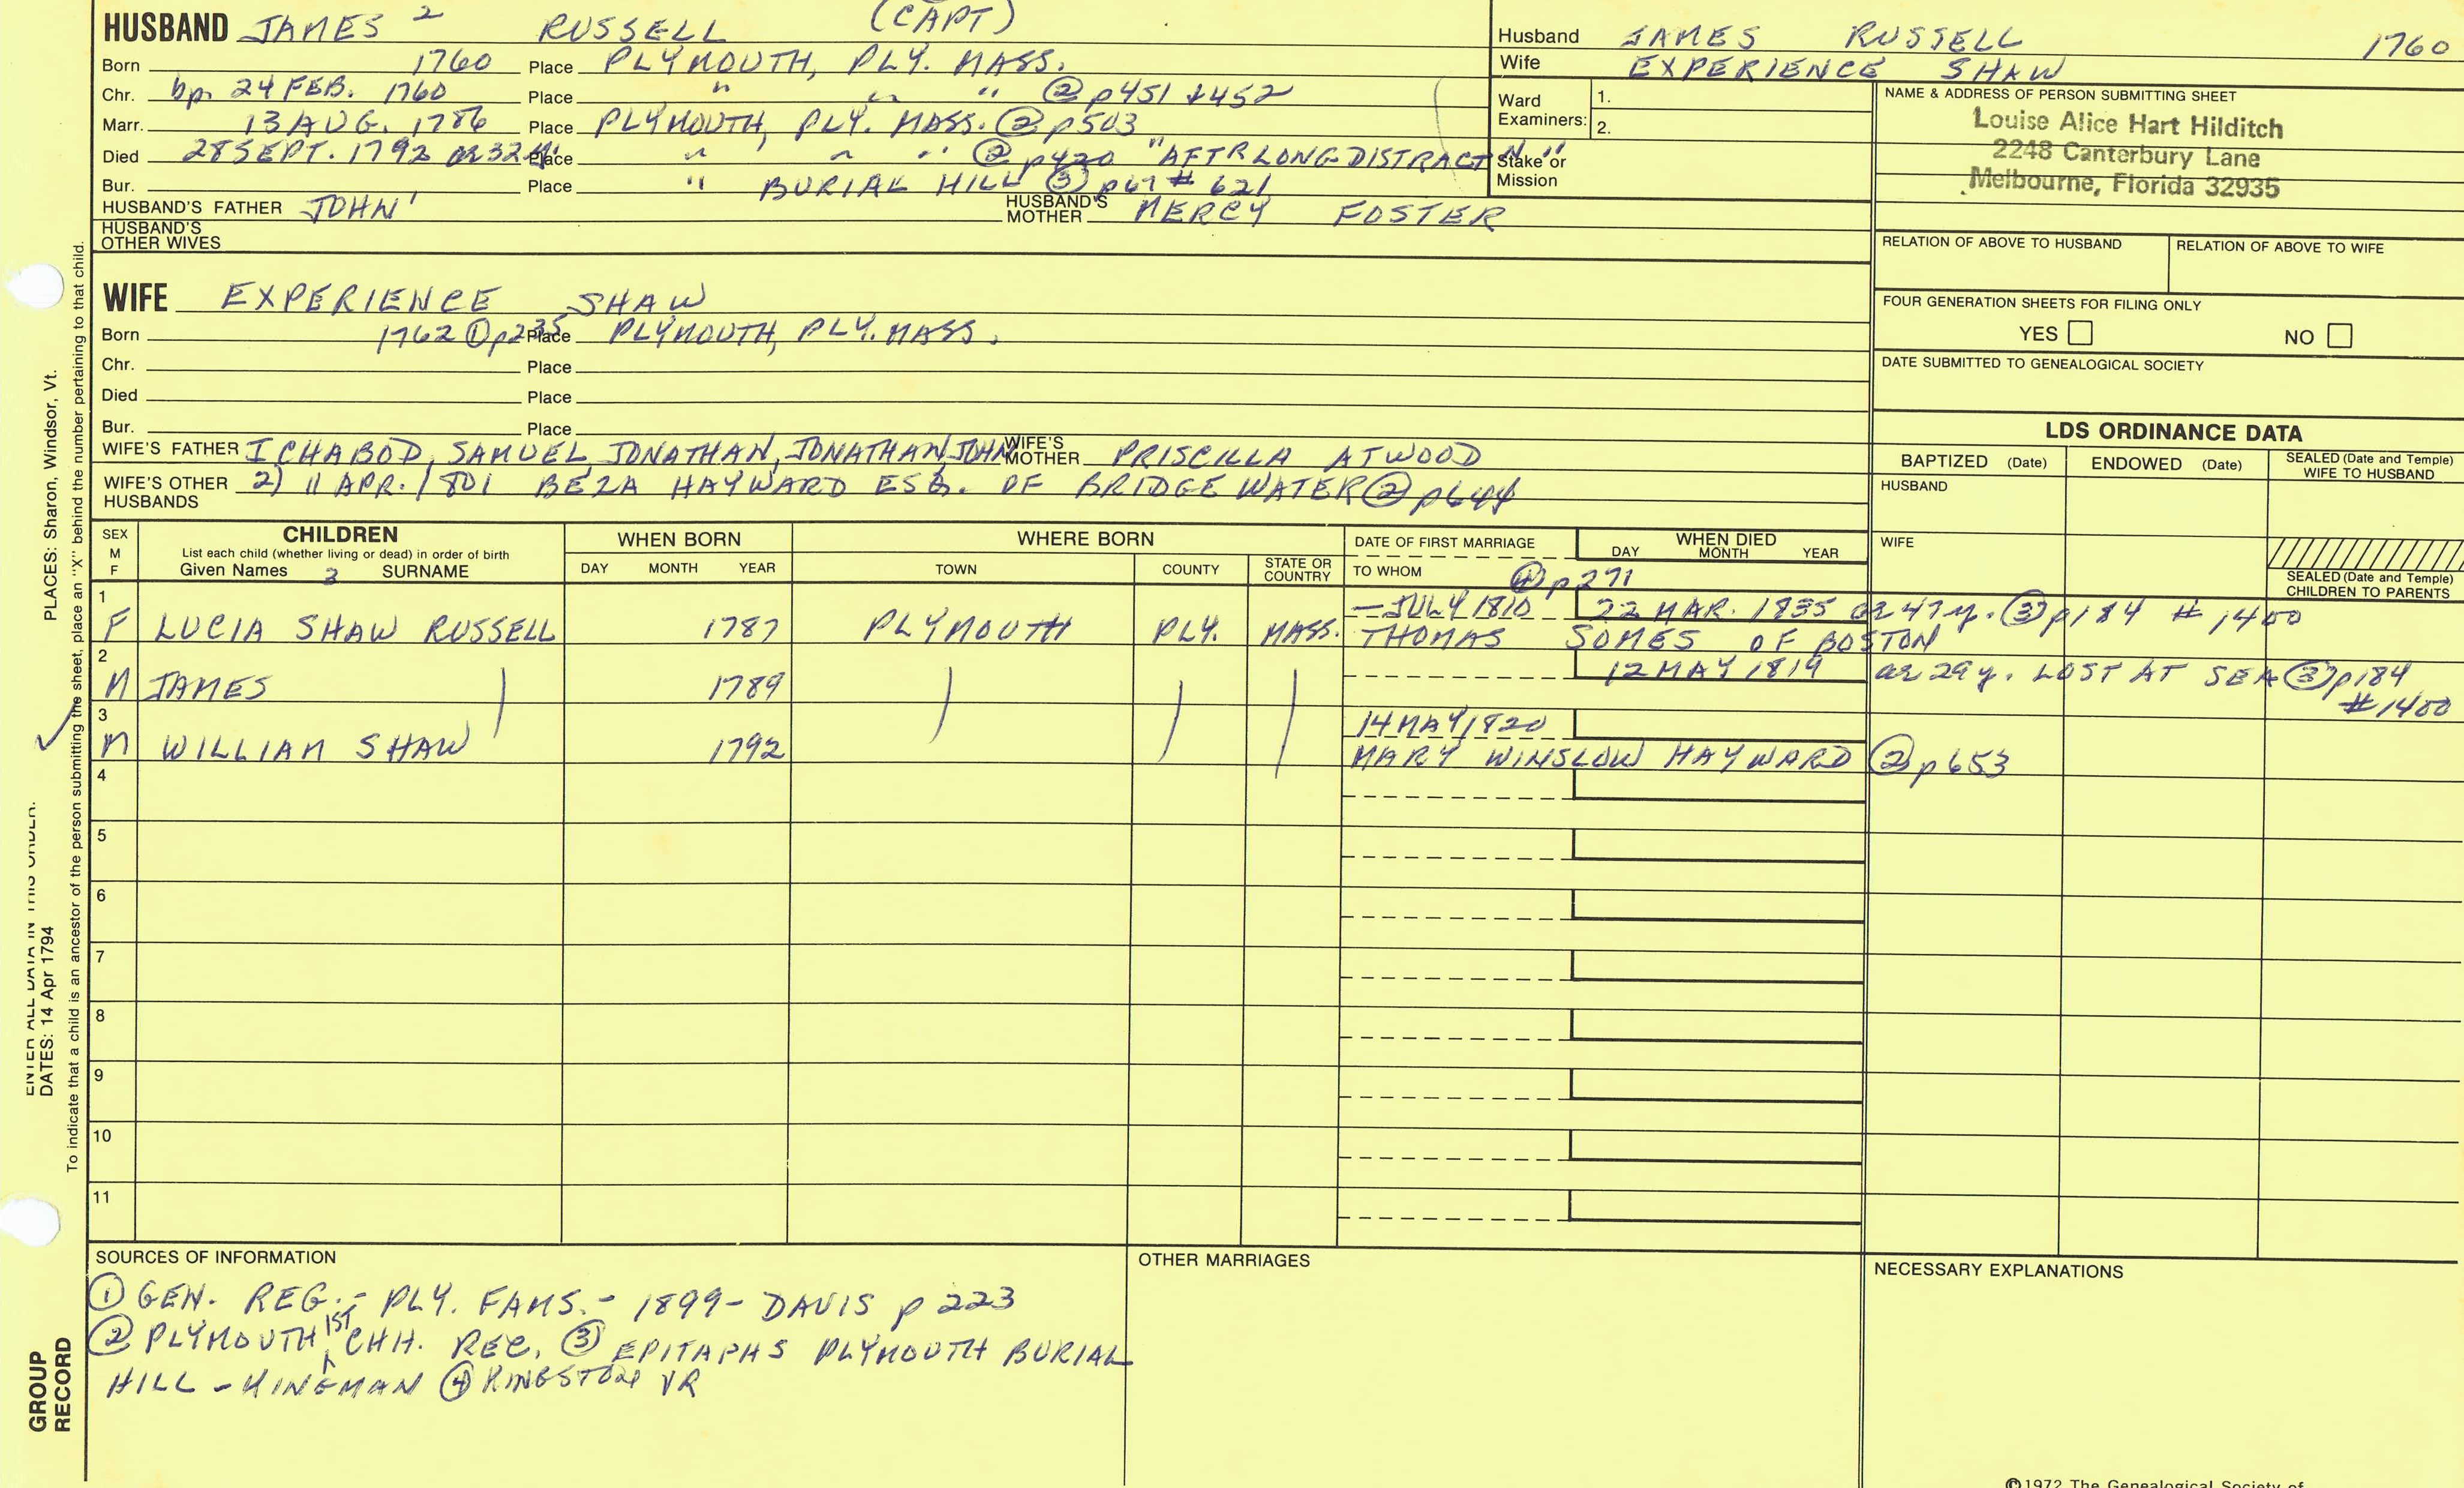 HUSBAND JAMES 2 RUSSELL (CAPT)
Born 1760 Place PLYMOUTH, PLY. MASS.
Chr. bp. 24 FEB. 1760 Place " " " ② p451 & 452
Marr. 13 AUG. 1786 Place PLYMOUTH, PLY. MASS. ② p503
Died 28 SEPT. 1792 ae 32 y. Place " " " ② p420 "AFTR LONG DISTRACT N"
Bur. Place " BURIAL HILL ③ p67 # 621
HUSBAND'S FATHER JOHN ' HUSBAND'S MOTHER MERCY FOSTER
HUSBAND'S OTHER WIVES
Husband JAMES RUSSELL 1760
Wife EXPERIENCE SHAW
Ward Examiners: 1.
2.
Stake or Mission
NAME & ADDRESS OF PERSON SUBMITTING SHEET
Louise Alice Hart Hilditch
2248 Canterbury Lane
Melbourne, Florida 32935
RELATION OF ABOVE TO HUSBAND RELATION OF ABOVE TO WIFE
FOUR GENERATION SHEETS FOR FILING ONLY
YES NO
DATE SUBMITTED TO GENEALOGICAL SOCIETY
WIFE EXPERIENCE SHAW
Born 1762 ① p235 Place PLYMOUTH, PLY. MASS.
Chr. Place
Died Place
Bur. Place
WIFE'S FATHER ICHABOD, SAMUEL, JONATHAN, JONATHAN, JOHN WIFE'S MOTHER PRISCILLA ATWOOD
WIFE'S OTHER HUSBANDS 2) 11 APR. 1801 BEZA HAYWARD ESQ. OF BRIDGEWATER ② p644
LDS ORDINANCE DATA
BAPTIZED (Date) ENDOWED (Date) SEALED (Date and Temple) WIFE TO HUSBAND
HUSBAND
WIFE
SEALED (Date and Temple) CHILDREN TO PARENTS
SEX M F CHILDREN List each child (whether living or dead) in order of birth Given Names 3 SURNAME
WHEN BORN DAY MONTH YEAR
WHERE BORN TOWN COUNTY STATE OR COUNTRY
DATE OF FIRST MARRIAGE TO WHOM
WHEN DIED DAY MONTH YEAR
④ p271
1 — JULY 1810 22 MAR. 1835 ae 47 y. ③ p184 # 1400
F LUCIA SHAW RUSSELL 1787 PLYMOUTH PLY. MASS. THOMAS SOMES OF BOSTON
2 12 MAY 1819 ae 29 y. LOST AT SEA ③ p184 # 1400
M JAMES 1789
3 14 MAY 1820
M WILLIAM SHAW 1792 MARY WINSLOW HAYWARD ② p653
4
5
6
7
8
9
10
11
SOURCES OF INFORMATION
① GEN. REG. - PLY. FAMS. - 1899 - DAVIS p 223
② PLYMOUTH 1ST CHH. REC. ③ EPITAPHS PLYMOUTH BURIAL
HILL - KINGMAN ④ KINGSTON VR
OTHER MARRIAGES
NECESSARY EXPLANATIONS
©1972 The Genealogical Society of
PLACES: Sharon, Windsor, Vt.
ENTER ALL DATA IN THIS ORDER:
DATES: 14 Apr 1794
To indicate that a child is an ancestor of the person submitting the sheet, place an "X" behind the number pertaining to that child.
GROUP
RECORD